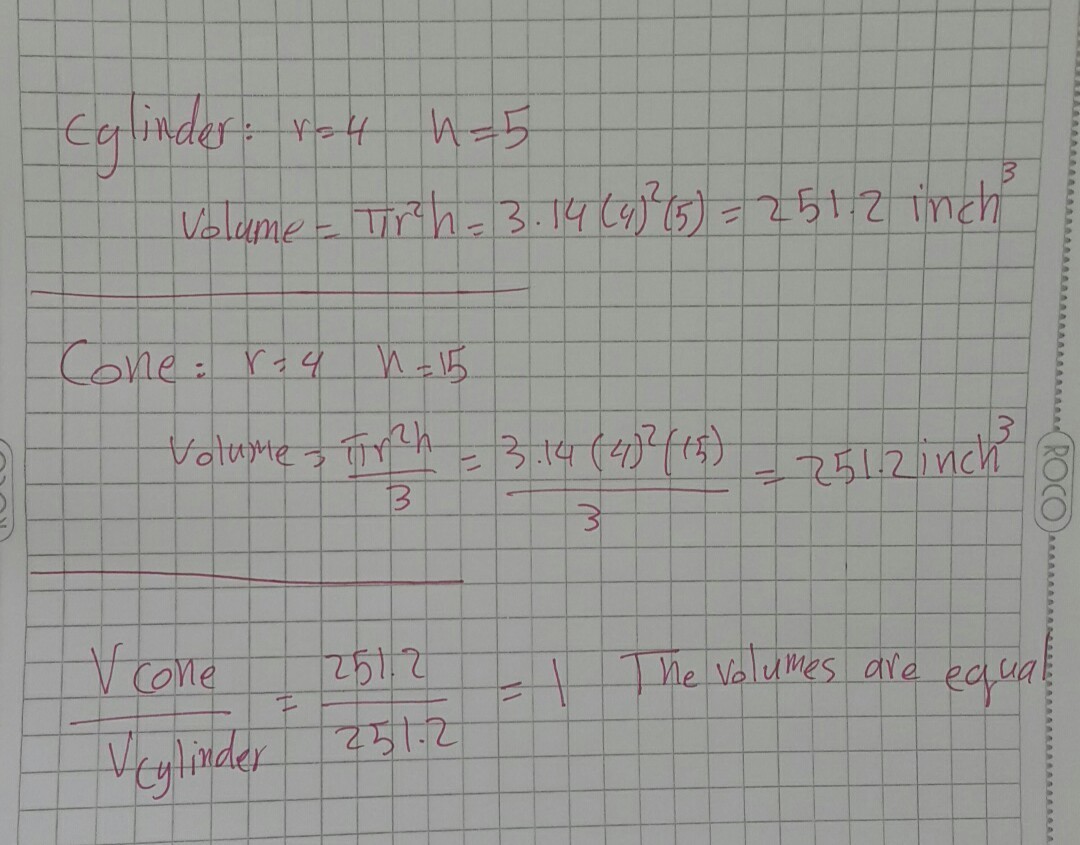 Cylinder: r=4 h=5
Volume = πr²h = 3.14 (4)²(5) = 251.2 inch³
Cone: r=4 h=15
Volume = πr²h/3 = 3.14 (4)²(15)/3 = 251.2 inch³
V cone/V cylinder = 251.2/251.2 = 1 The volumes are equal
ROCO